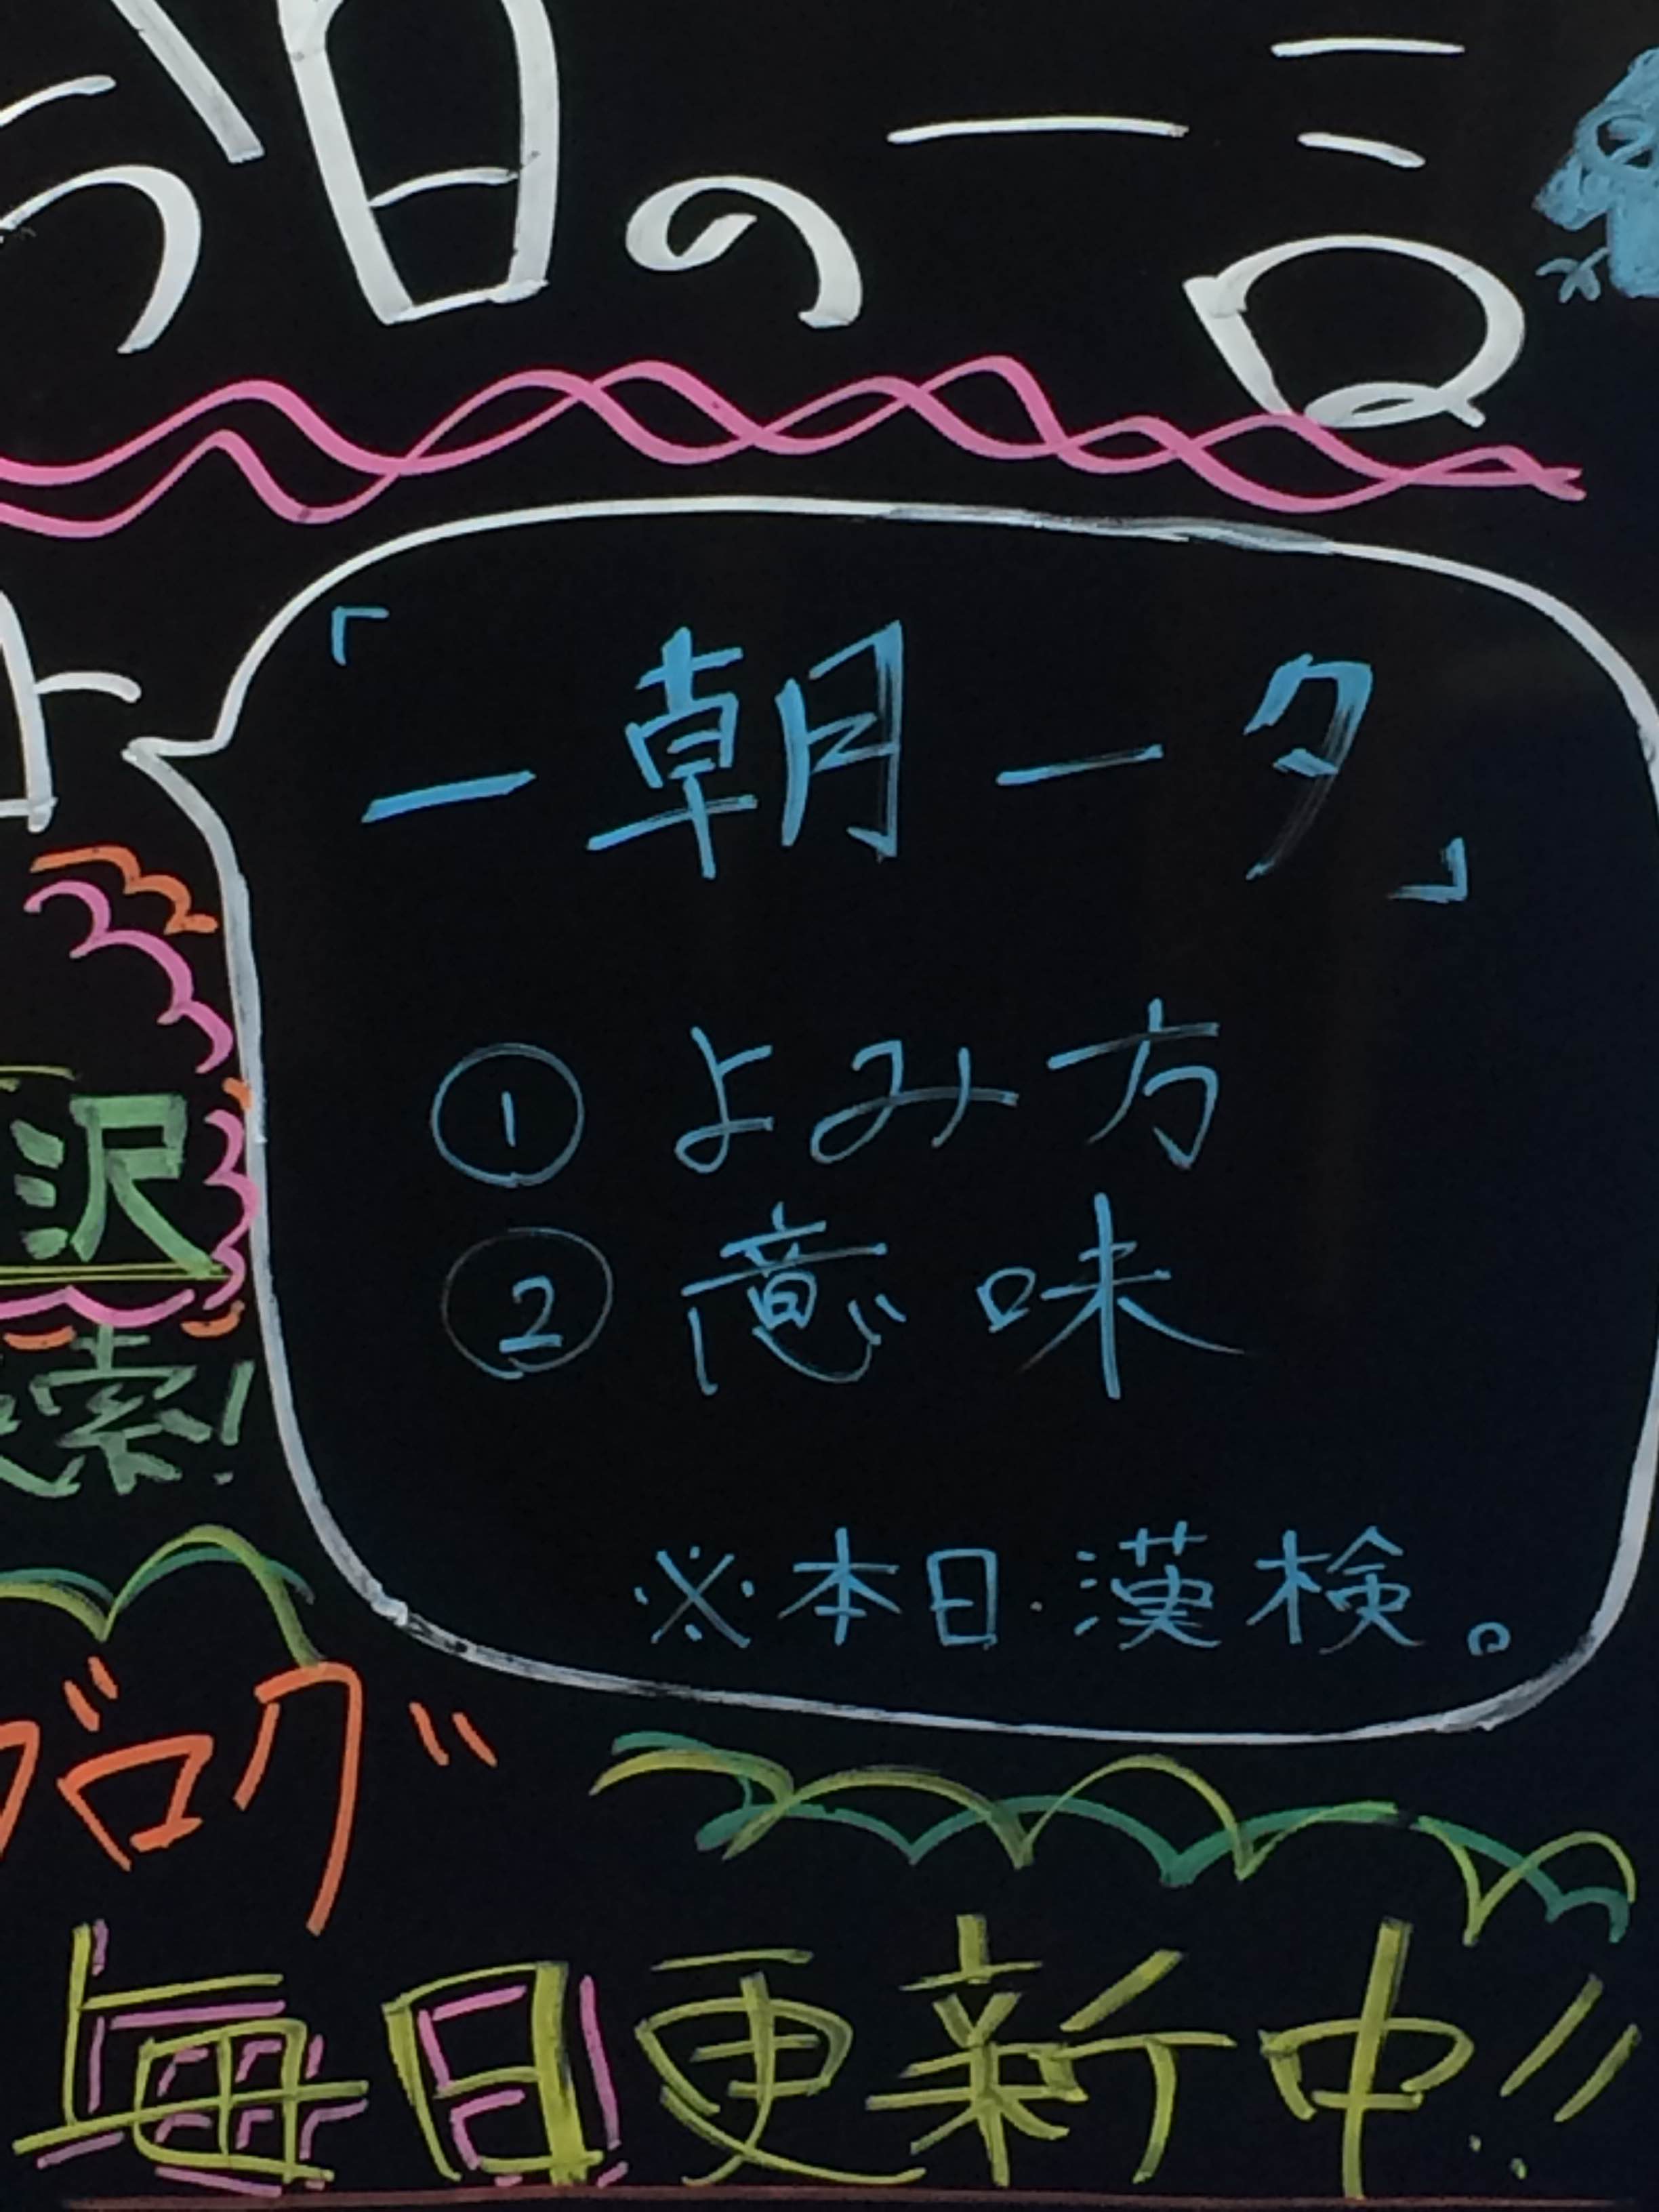 今日の一言
「一朝一夕」
① よみ方
② 意味
※本日漢検。
沢
検索!
ブログ
毎日更新中!!